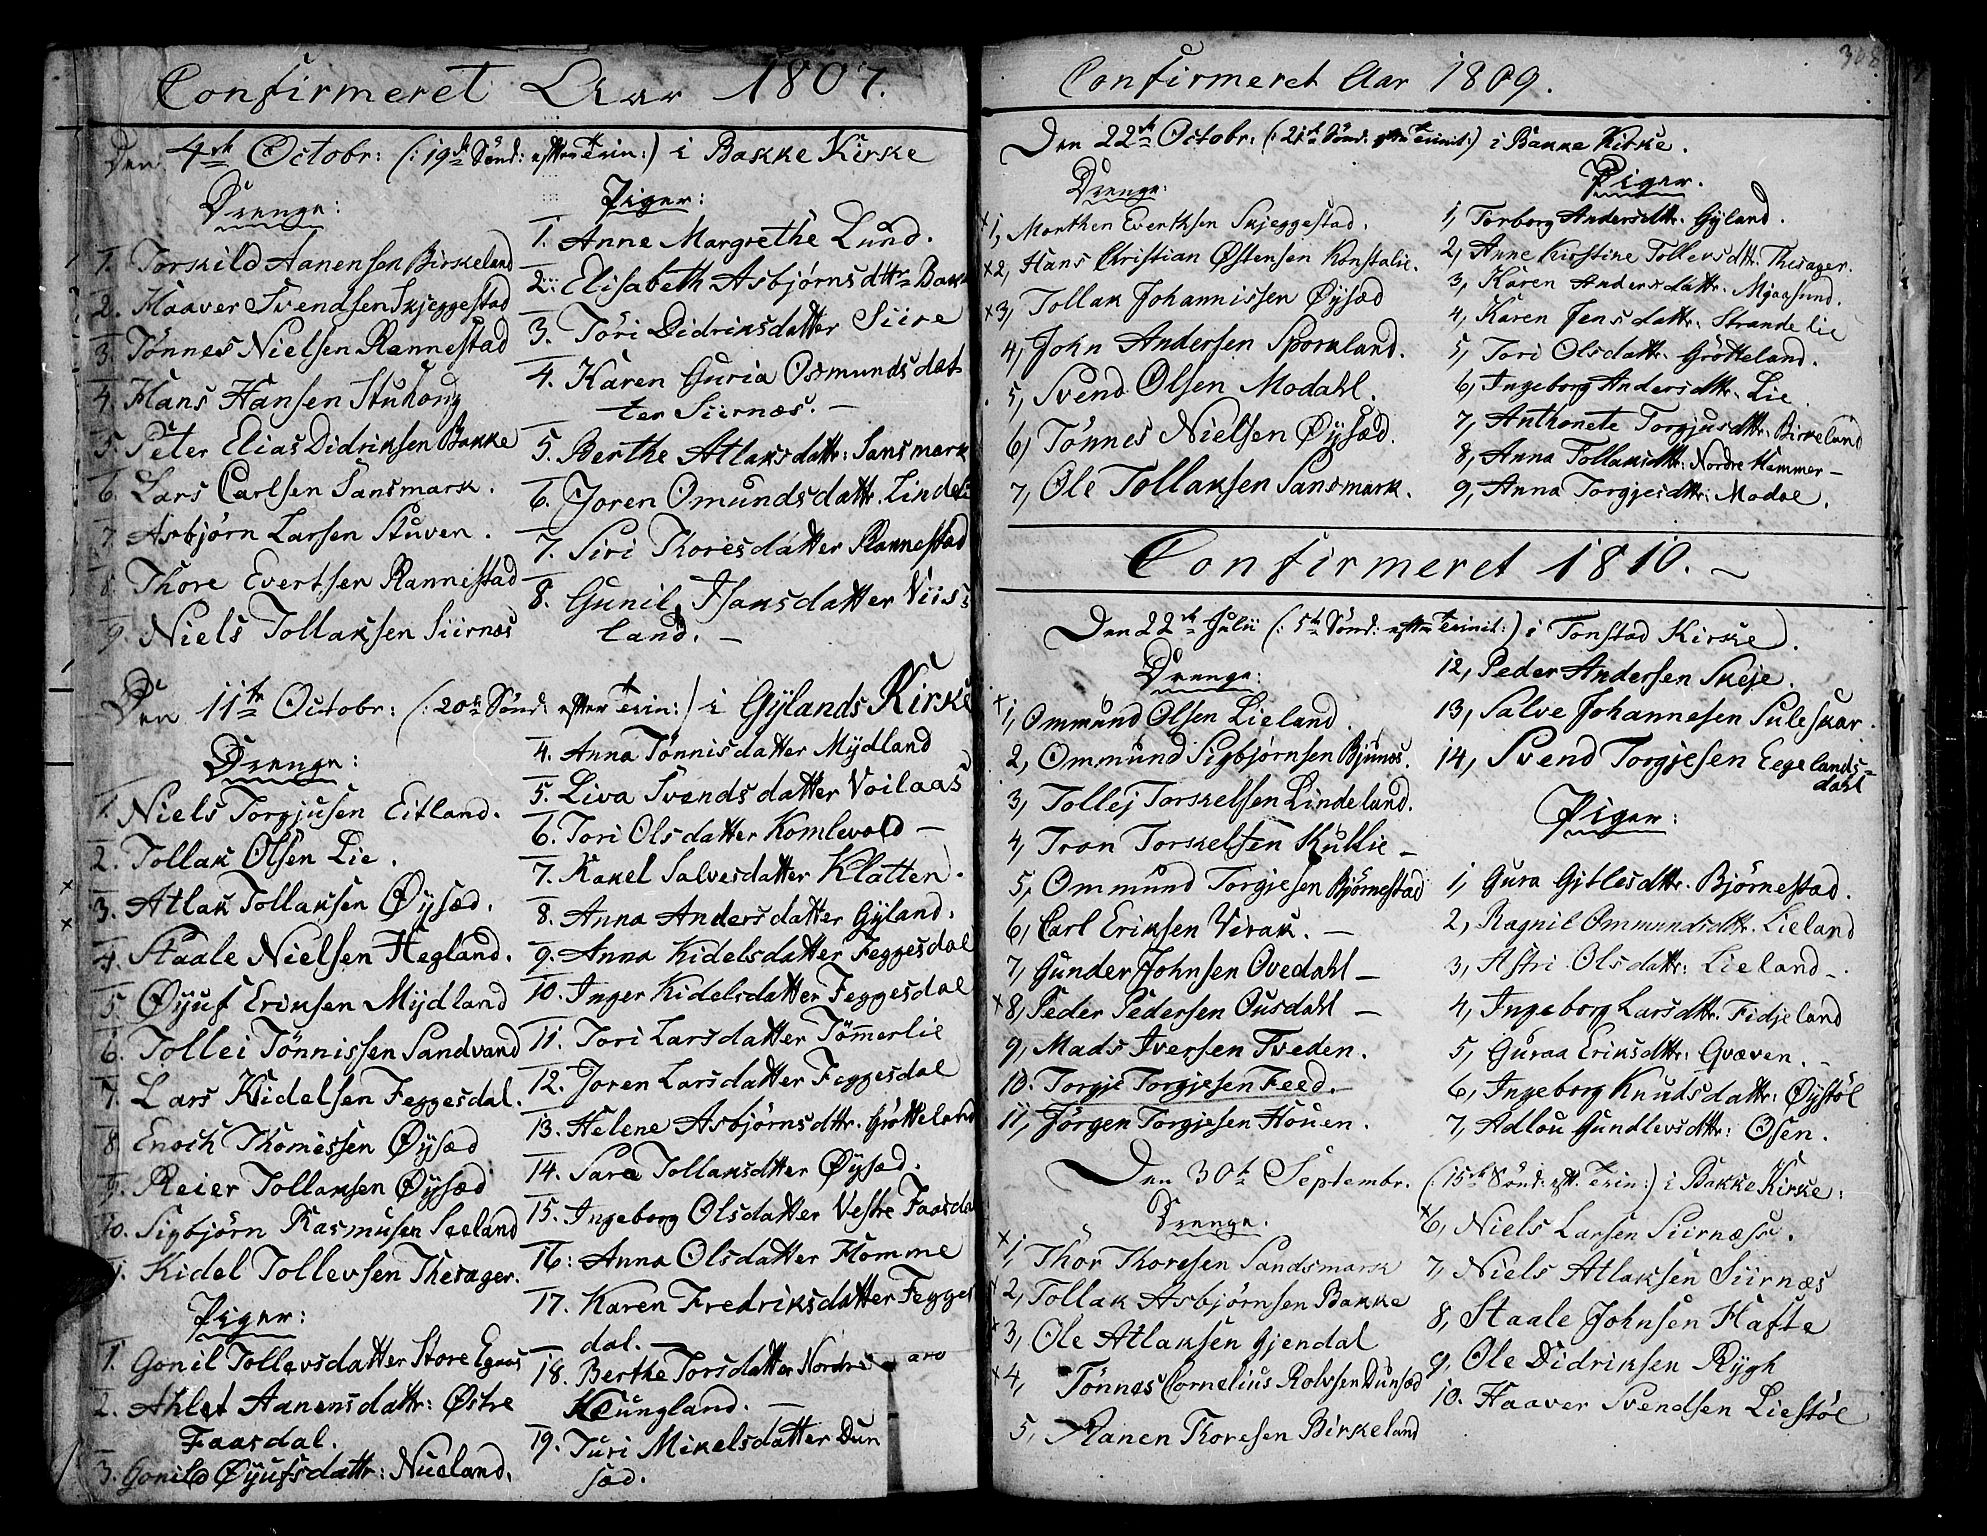 Confirmeret Aar 1807.
Den 4de Octobr: (: 19de Sönd: efter Trin:) i Bakke Kirke
Drenge:
1. Torskild Aanensen Birkeland
2. Haaver Svendsen Skjeggestad
3. Tönnes Nielsen Rannestad
4. Hans Hansen Stuhoug
5. Peter Elias Didriksen Bakke
6. Lars Carlsen Sansmark.
7. Asbjörn Larsen Stuven.
8. Thore Evertsen Rannestad
9. Niels Tollaksen Siirnæs
Piger:
1. Anne Margrethe Lund.
2. Elisabeth Asbjörnsdttr Bakk
3. Töri Didriksdatter Siire
4. Karen Guria Osmundsdat
ter Siirnæs. —
5. Berthe Atlaksdattr: Sansmark
6. Joren Omundsdattr. Lindel
7. Siri Thoresdatter Rannestad
8. Gunil Isaksdatter Viis
land. —
Den 11te Octobr: (: 20de Sönd: efter Trin:) i Gÿlands Kirke
Drenge:
1. Niels Torgjusen Eitland.
2. Tollak Olsen Lie.
3. Atlak Tollaksen Öÿsæd.
4. Staale Nielsen Hegland.
5 Öÿuf Eriksen Mÿdland
6. Tollei Tönnissen Sandvand
7. Lars Kidelsen Feggesdal.
8 Enoch Thomissen Öÿsæd
9. Reier Tollaksen Öÿsæd
10. Sigbjörn Rasmusen Seeland
11. Kidel Tollevsen Thesager.
Piger:
1. Gonil Tollevsdatter Store Egaas
2. Ahlet Aanensdattr: Östre
Faasdal.
3. Gonild Öÿufsdattr: Nueland.
4. Anna Tönnisdatter Mÿdland
5. Liva Svendsdatter Voilaas
6. Tori Olsdatter Komlevold —
7. Rakel Salvesdatter Klatten.
8. Anna Andersdatter Gÿland.
9. Anna Kidelsdatter Feggesdal
10. Inger Kidelsdatter Feggesdal
11. Tori Larsdatter Tömmerlie
12. Joren Larsdatter Feggesdal
13. Helene Asbjörnsdttr. Grötteland
14. Sara Tollaksdatter Öÿsæd.
15. Ingeborg Olsdatter Vestre Faasda
16: Anna Olsdatter Homme
17. Karen Fredriksdatter Fegges
dal. —
18. Berthe Torsdatter Nordre
Keungland. —
19. Turi Mikelsdatter Dun
sæd.
308
Confirmeret Aar 1809.
Den 22de Octobr: (: 21de Sönd: efter Trinit:) i Bakke Kirke.
Drenge:
× 1, Morthen Evertsen Skjeggestad.
× 2, Hans Christian Östensen Konstalie.
× 3, Tollak Johannissen Öÿsæd
4, John Andersen Sporkland.
5, Svend Olsen Modahl.
6, Tönnes Nielsen Öÿsæd.
7, Ole Tollaksen Sansmark.
Piger.
1, Torborg Andersdttr. Gÿland.
2, Anne Kirstine Tollevsdttr: Thesager.
3, Karen Andersdattr: Mjaasund.
4, Karen Jensdattr: Strandelie
5, Tori Olsdattr. Grötteland.
6, Ingeborg Andersdttr. Lie.
7, Anthonete Torgjusdttr: Birkeland
8, Anna Tollaksdttr: Nordre Hammer —
9, Anna Torgjesdttr: Modal.
Confirmeret 1810. —
Den 22de Julii (: 5te Sönd: efter Trinit:) i Tonstad Kirke.
Drenge:
× 1, Ommund Olsen Lieland.
2, Ommund Sigbjörnsen Bjunes.
3, Tollej Torskelsen Lindeland.
4, Tron Torskelsen Kullie —
5, Ommund Torgjesen Björnestad
6, Carl Eriksen Virak. —
7, Gunder Johnsen Ovedahl —
× 8, Peder Pedersen Ousdahl —
9, Mads Iversen Tveden.
10. Torgje Torgjesen Feed. —
11, Jörgen Torgjesen Houen.
12, Peder Andersen Skeje.
13, Salve Johannesen Suleskar.
14, Svend Torgjesen Eegelands-
dahl
Piger:
1, Gura Gitlesdttr. Björnestad.
2, Ragnil Ommundsdttr. Lieland
3, Astri Olsdattr: Lieland —
4, Ingeborg Larsdttr. Fidjeland
5, Guraa Eriksdttr: Gvæven. —
6, Ingeborg Knudsdattr: Öÿstöl
7, Adlou Gundlevsdttr: Osen.
Den 30te Septembr. (: 15de Sönd: eft. Trin:) i Bakke Kirke:
Drenge:
× 1, Thor Thoresen Sandsmark
× 2, Tollak Asbjörnsen Bakke
× 3, Ole Atlaksen Gjendal
× 4, Tönnes Cornelius Rolvsen Dunsæd
5, Aanen Thoresen Birkeland
× 6, Niels Larsen Siirnæs.
7, Niels Atlaksen Siirnæs
8, Staale Johnsen Hafte
9, Ole Didriksen Rÿgh
10. Haaver Svendsen Liestöl